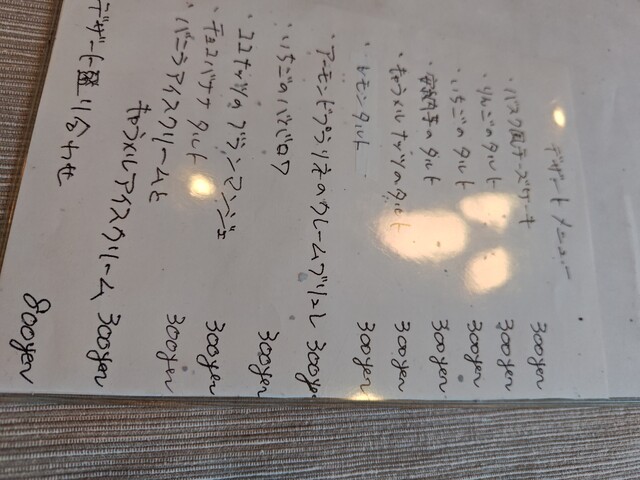 デザートメニュー
・バスク風チーズケーキ 300yen
・りんごのタルト 300yen
・いちごのタルト 300yen
・安納芋のタルト 300yen
・キャラメルナッツのタルト 300yen
・レモンタルト 300yen
・アーモンドプラリネのクレームブリュレ 300yen
・いちごのババロワ 300yen
・ココナッツのブランマンジェ 300yen
・チョコバナナタルト 300yen
・バニラアイスクリームと
キャラメルアイスクリーム 300yen
デザート盛り合わせ 800yen